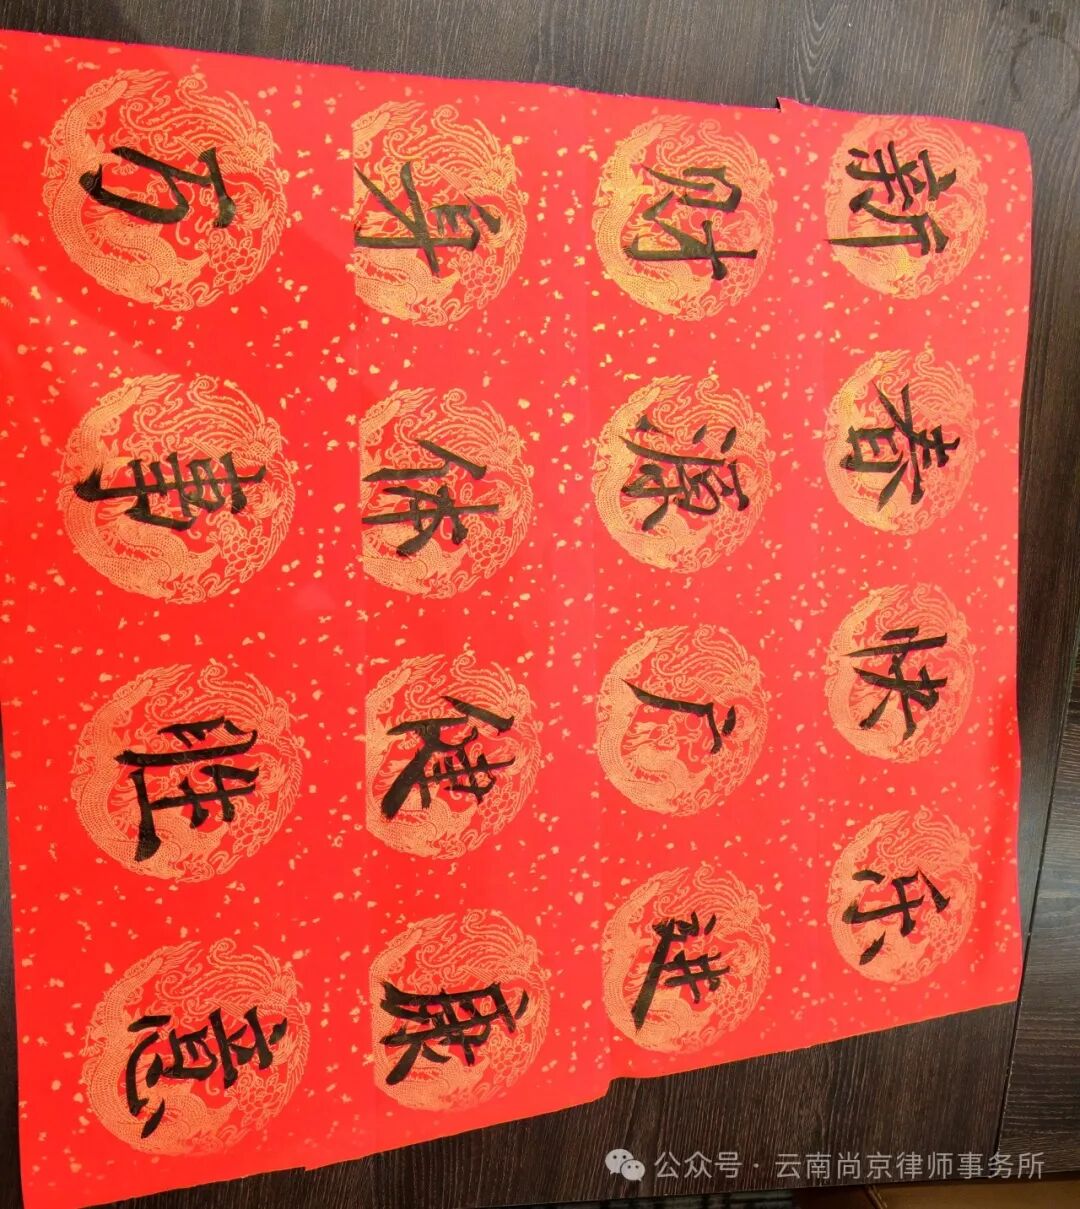 新春快乐
财源广进
身体健康
万事胜意
公众号·云南尚京律师事务所